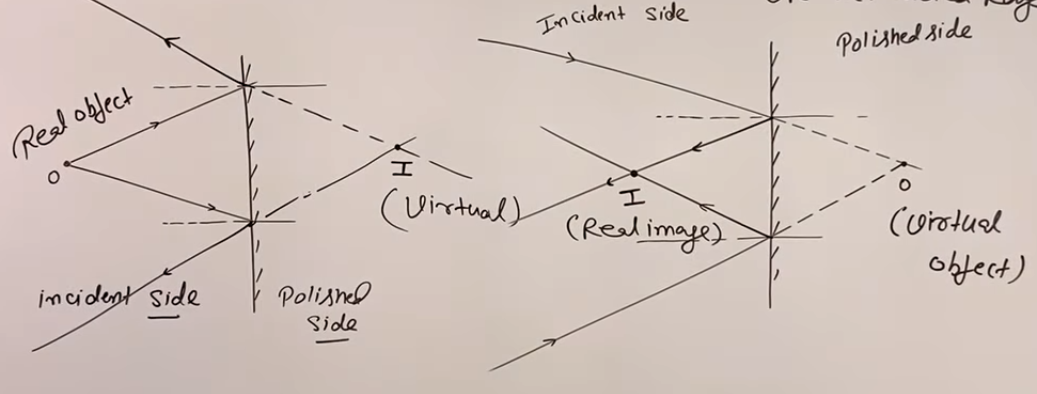 Real object
O
I
(Virtual)
incident side
Polished
side
Incident side
Polished side
I
(Real image)
O
(Virtual
object)